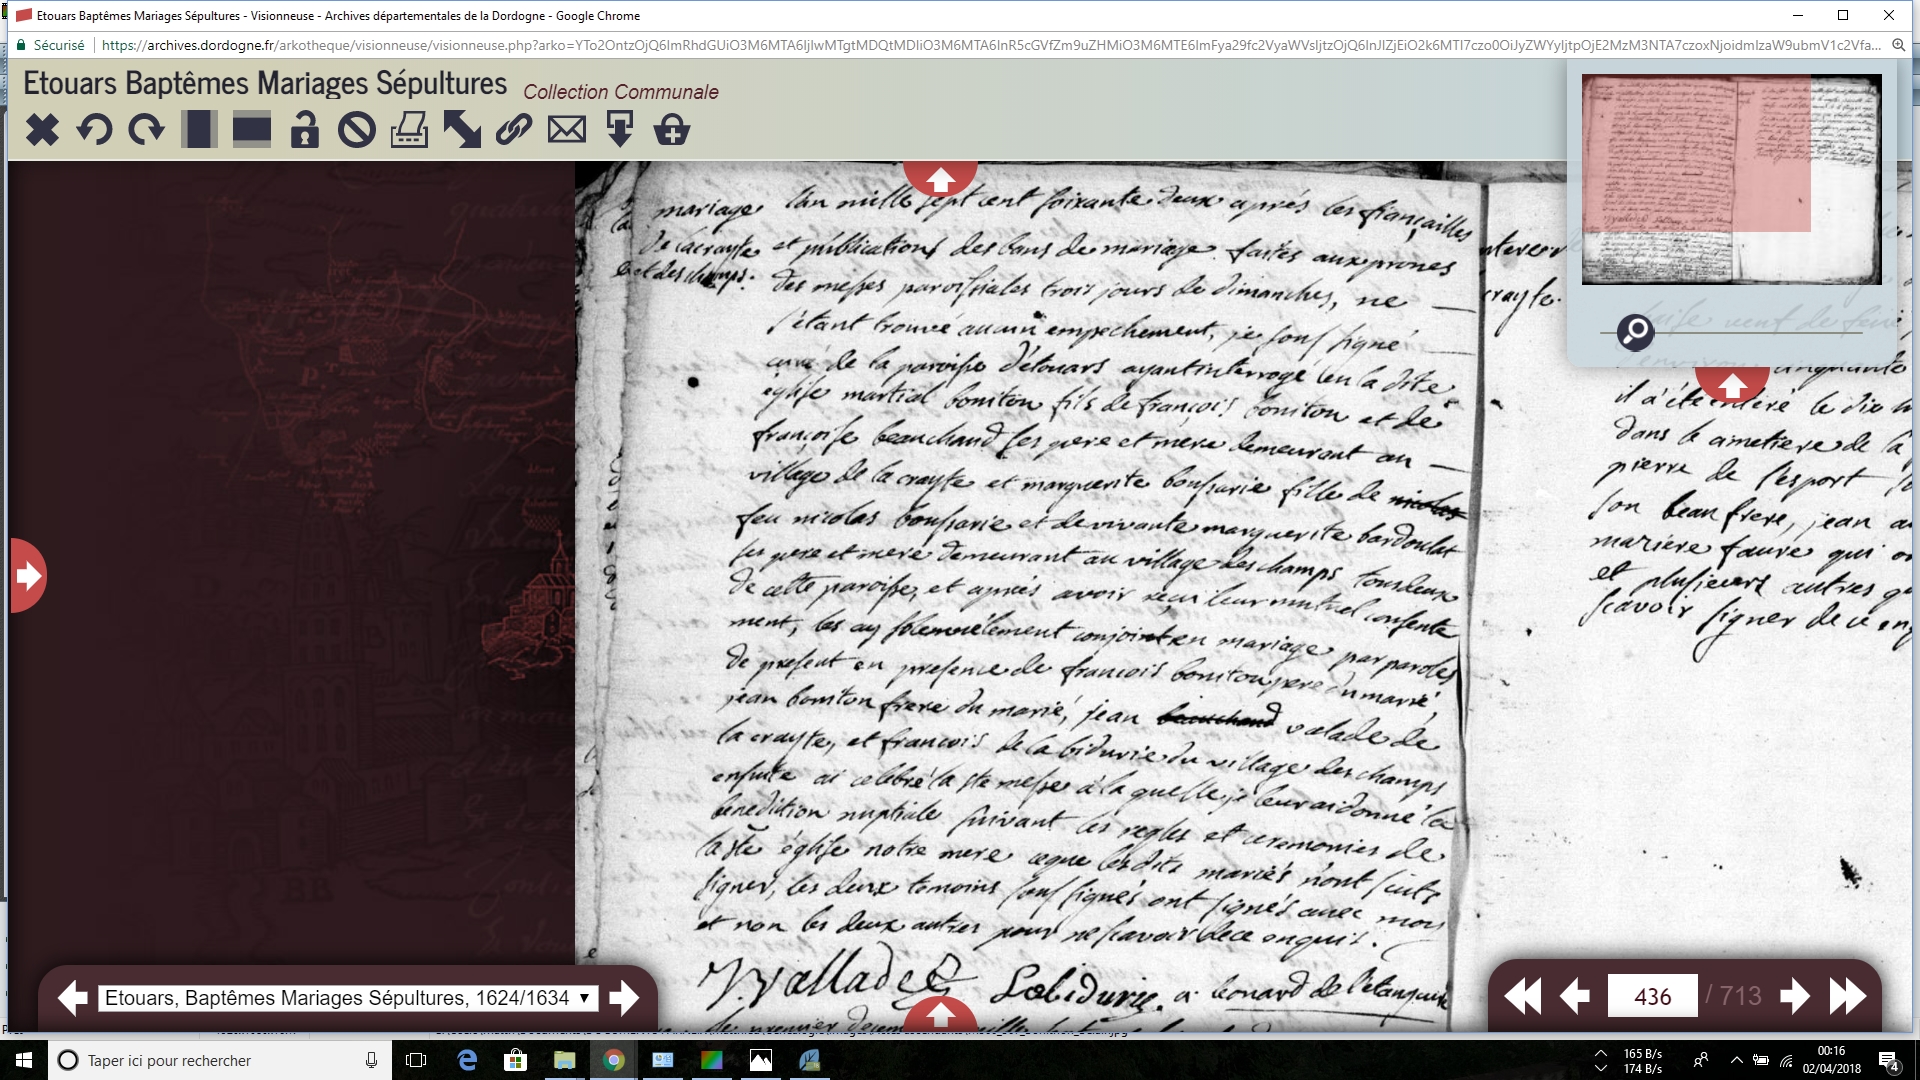 Etouars Baptêmes Mariages Sépultures - Visionneuse - Archives départementales de la Dordogne - Google Chrome
Sécurisé
Etouars Baptêmes Mariages Sépultures Collection Communale
mariage
de lacrayte
et deschamps.
l'an mille sept cent soixante deux aprés les françailles
et publications des bans de mariage faites aux prones
des messes paroissiales trois jours de dimanches, ne
s'etant trouvé aucun empechement, je soussigné
curé de la paroisse d'etouars ayant interrogé en la dite
église martial boniton fils de françois boniton et de
françoise beauchaud ses pere et mere demeurant au
village de la crayte et marguerite boussarie fille de nicolas
feu nicolas boussarie et de vivante marguerite bardoulat
ses pere et mere demeurant au village deschamps tous deux
de cette paroisse, et aprés avoir reçu leur mutuel consente
ment, les ay solemnélement conjoint en mariage par paroles
de present en presence de françois boniton pere du marié,
jean boniton frere du marié, jean beauchaud valade de
la crayte, et francois de la bidurie du village des champs
ensuite ai celebré la ste messe à la quelle je leur ai donné la
benediction nuptiale suivant les regles et ceremonies de
la ste église notre mere ce que les dits mariés n'ont scuts
signer, les deux temoins soussignés ont signés avec moy
et non les deux autres pour ne scavoir de ce enquis.
J. Vallade Labidurie
crayte.
cinquante
il a été enteré le dix h
dans le cimetiere de la
pierre de l'esport
son beau frere, jean
mariere faure qui
et plusieurs autres
scavoir signer de ce enq
Etouars, Baptêmes Mariages Sépultures, 1624/1634
436 / 713
Taper ici pour rechercher
165 B/s
174 B/s
00:16
02/04/2018
4